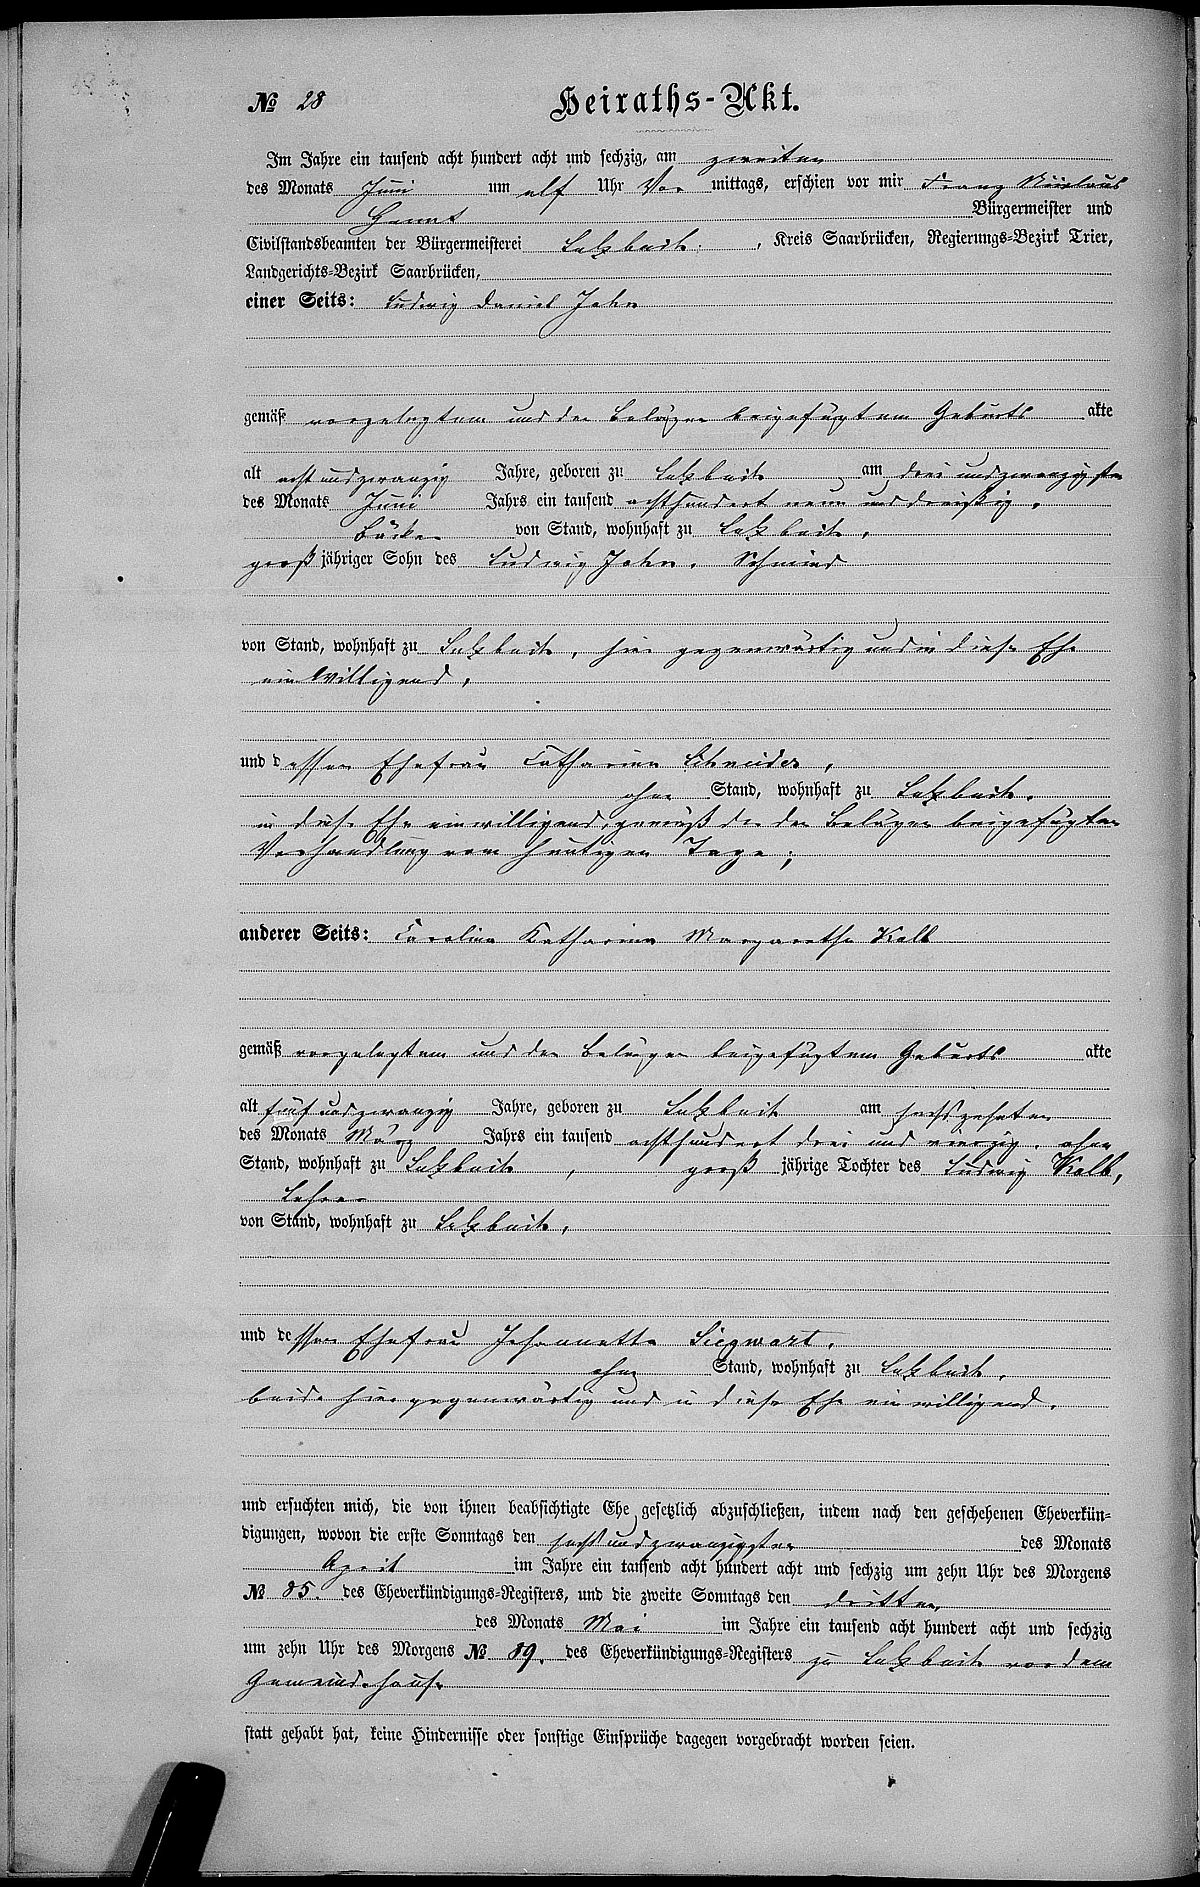 № 28 Heiraths-Akt.
Im Jahre ein tausend acht hundert acht und sechzig, am zweiten
des Monats Juni um elf Uhr Vor mittags, erschien vor mir Franz Nicolaus
Bürgermeister und
Civilstandsbeamten der Bürgermeisterei Sulzbach, Kreis Saarbrücken, Regierungs-Bezirk Trier,
Landgerichts-Bezirk Saarbrücken,
einer Seits: Ludwig Daniel Jahn
gemäß vorgelegtem und den Belägen beigefügtem Geburts akte
alt acht und zwanzig Jahre, geboren zu Sulzbach am drei und zwanzigsten
des Monats Juni Jahrs ein tausend achthundert neun und dreißig,
Bäcker von Stand, wohnhaft zu Sulzbach,
groß jähriger Sohn des Ludwig Jahn, Schmied
von Stand, wohnhaft zu Sulzbach, hier gegenwärtig und in diese Ehe
einwilligend,
und dessen Ehefrau Catharina Schneider,
ohne Stand, wohnhaft zu Sulzbach,
in diese Ehe einwilligend, gemäß der den Belägen beigefügten
Verhandlung vom heutigen Tage;
anderer Seits: Carolina Katharina Margaretha Kolb
gemäß vorgelegtem und den Belägen beigefügtem Geburts akte
alt fünf und zwanzig Jahre, geboren zu Sulzbach am sechszehnten
des Monats März Jahrs ein tausend achthundert drei und vierzig, ohne
Stand, wohnhaft zu Sulzbach, groß jährige Tochter des Ludwig Kolb,
Lehrer
von Stand, wohnhaft zu Sulzbach,
und dessen Ehefrau Johannetta Siegwart,
ohne Stand, wohnhaft zu Sulzbach,
beide hier gegenwärtig und in diese Ehe einwilligend.
und ersuchten mich, die von ihnen beabsichtigte Ehe gesetzlich abzuschließen, indem nach den geschehenen Eheverkün-
digungen, wovon die erste Sonntags den sechs und zwanzigsten des Monats
April im Jahre ein tausend acht hundert acht und sechzig um zehn Uhr des Morgens
№ 85. des Eheverkündigungs-Registers, und die zweite Sonntags den dritten,
des Monats Mai im Jahre ein tausend acht hundert acht und sechzig
um zehn Uhr des Morgens № 89. des Eheverkündigungs-Registers zu Sulzbach vor dem
Gemeindehause
statt gehabt hat, keine Hindernisse oder sonstige Einsprüche dagegen vorgebracht worden seien.